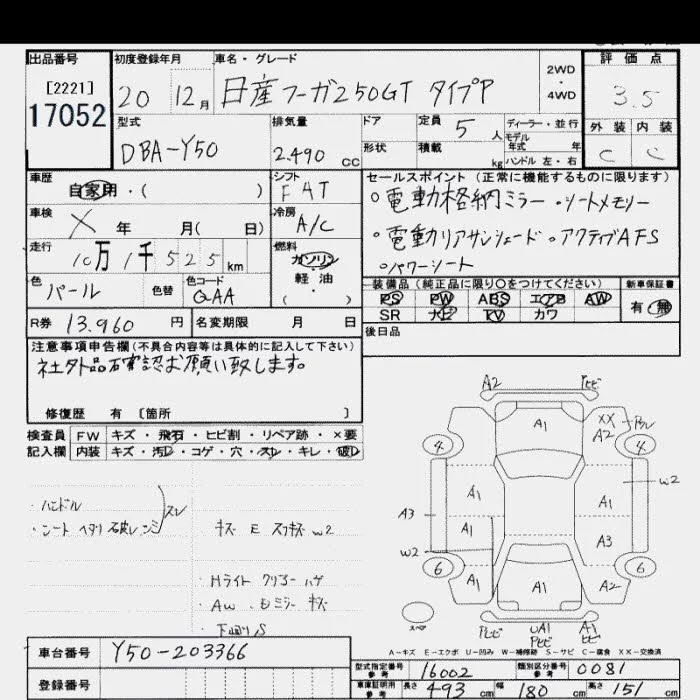 出品番号
[2221]
17052
初度登録年月
20 12月
車名・グレード
日産フーガ250GT タイプP
2WD
・
4WD
評価点
3.5
外装 内装
C C
型式
DBA-Y50
排気量
2.490 cc
ドア
形状
定員 5 人
積載 kg
ディーラー・並行
モデル
年式 年
ハンドル 左・右
車歴
自家用・( )
シフト
FAT
セールスポイント(正常に機能するものに限ります)
・電動格納ミラー ・シートメモリー
・電動リアサンシェード ・アクティブAFS
・パワーシート
車検
X 年 月( 日)
冷房
A/C
走行
10万1千525km
燃料
ガソリン
軽・油
( )
色
パール
色替
色コード
QAA
装備品(純正品に限り○をつけてください)
PS PW ABS エアB AW
SR ナビ TV カワ
新車保証書
有・無
R券 13.960円
名変期限 月 日
後日品
注意事項申告欄(不具合内容等は具体的に記入して下さい)
社外品石確認お願い致します。
修復歴 有 [箇所 ]
検査員
記入欄
FW キズ・飛石・ヒビ割・リペア跡・×要
内装 キズ・汚レ・コゲ・穴・スレ・キレ・破レ
・ハンドル
・シート ヘタリ 破レンジ
スレ
キズ E スリキズ W2
・Hライト クリヤー ハゲ
・AW. ドミラー キズ
・下回リS
A2 Pヒビ
XX
A2
A1
4 4
A1 A1
W2
A3
A1 A3
W2
6 6
A1 A1 A2
スペア
Pヒビ UA1 A1
Pヒビ ヒビ
A-キズ E-エクボ U-凹み W-補修跡 S-サビ C-腐食 XX-交換済
車台番号 Y50-203366
登録番号
型式指定番号
参考
16002
類別区分番号
参考
0081
車庫証明用
参考
長さ 493 cm 幅 180 cm 高さ 151 cm